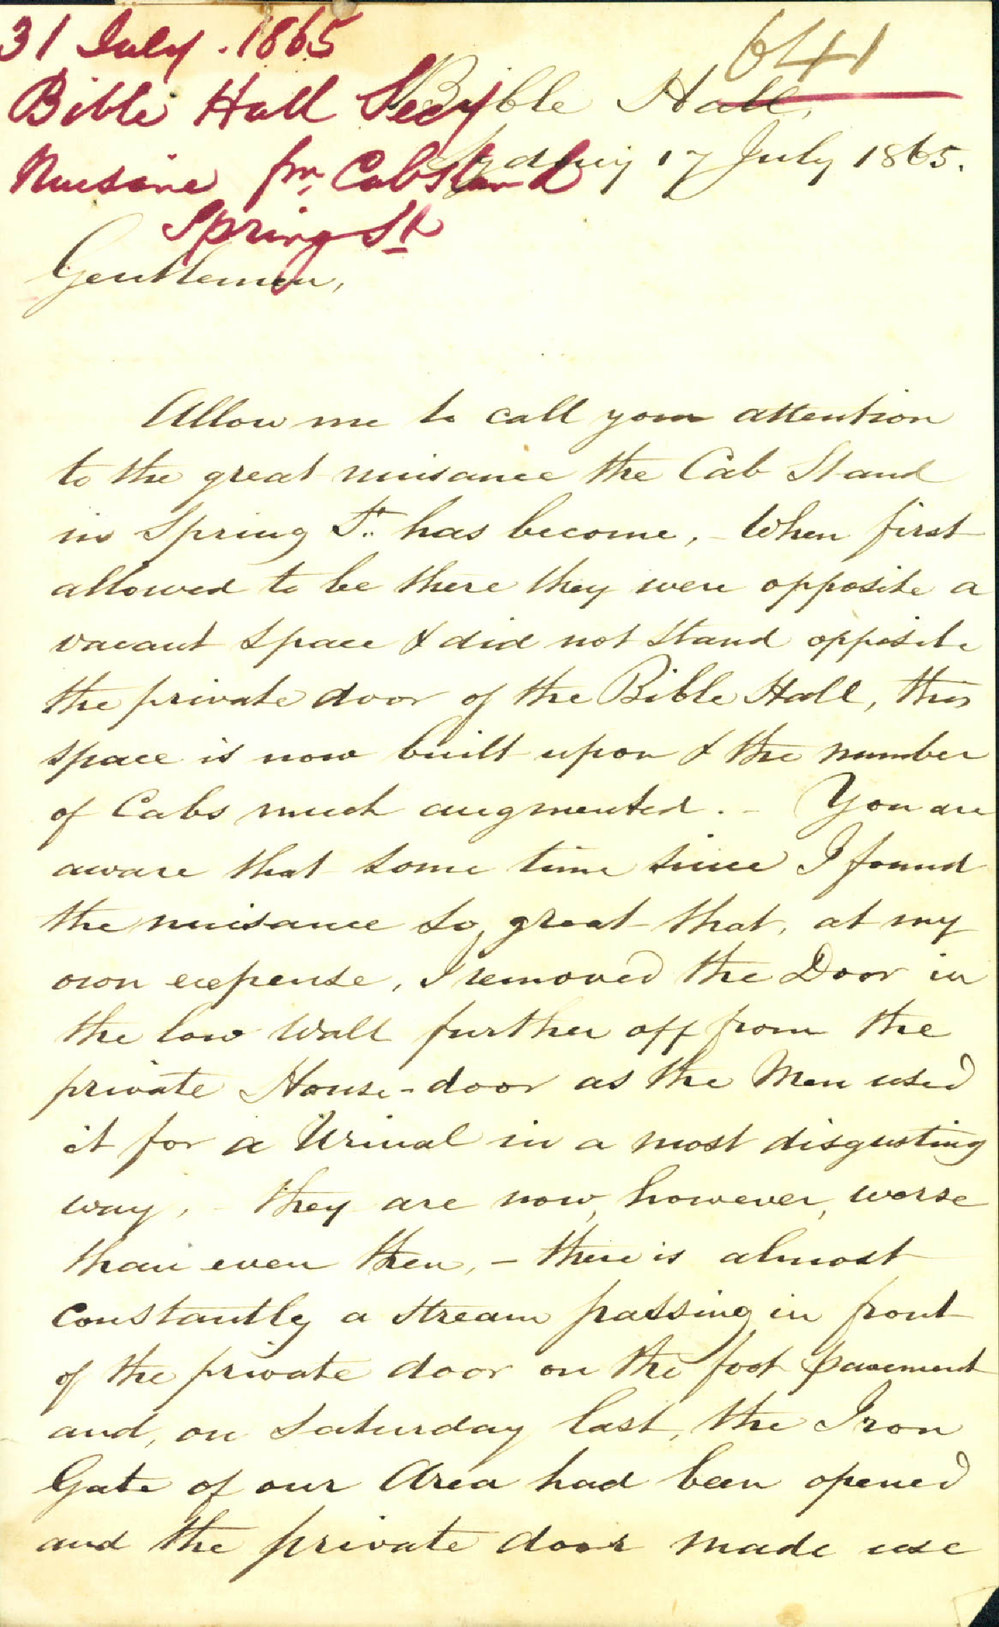 31 July. 1865
641
Bible Hall Secy
Bible Hall,
Sydney 17 July 1865.
Nuisance fm Cabstand
Spring St
Gentlemen,
Allow me to call your attention
to the great nuisance the Cab Stand
in Spring St. has become, - When first
allowed to be there they were opposite a
vacant space & did not stand opposite
the private door of the Bible Hall, this
space is now built upon & the number
of Cabs much augmented. - You are
aware that some time since I found
the nuisance so great that, at my
own expense, I removed the Door in
the low Wall further off from the
private House-door as the Men used
it for a Urinal in a most disgusting
way, - they are now, however, worse
than even then, - there is almost
constantly a stream passing in front
of the private door on the foot pavement
and, on Saturday last, the Iron
Gate of our Area had been opened
and the private door made use